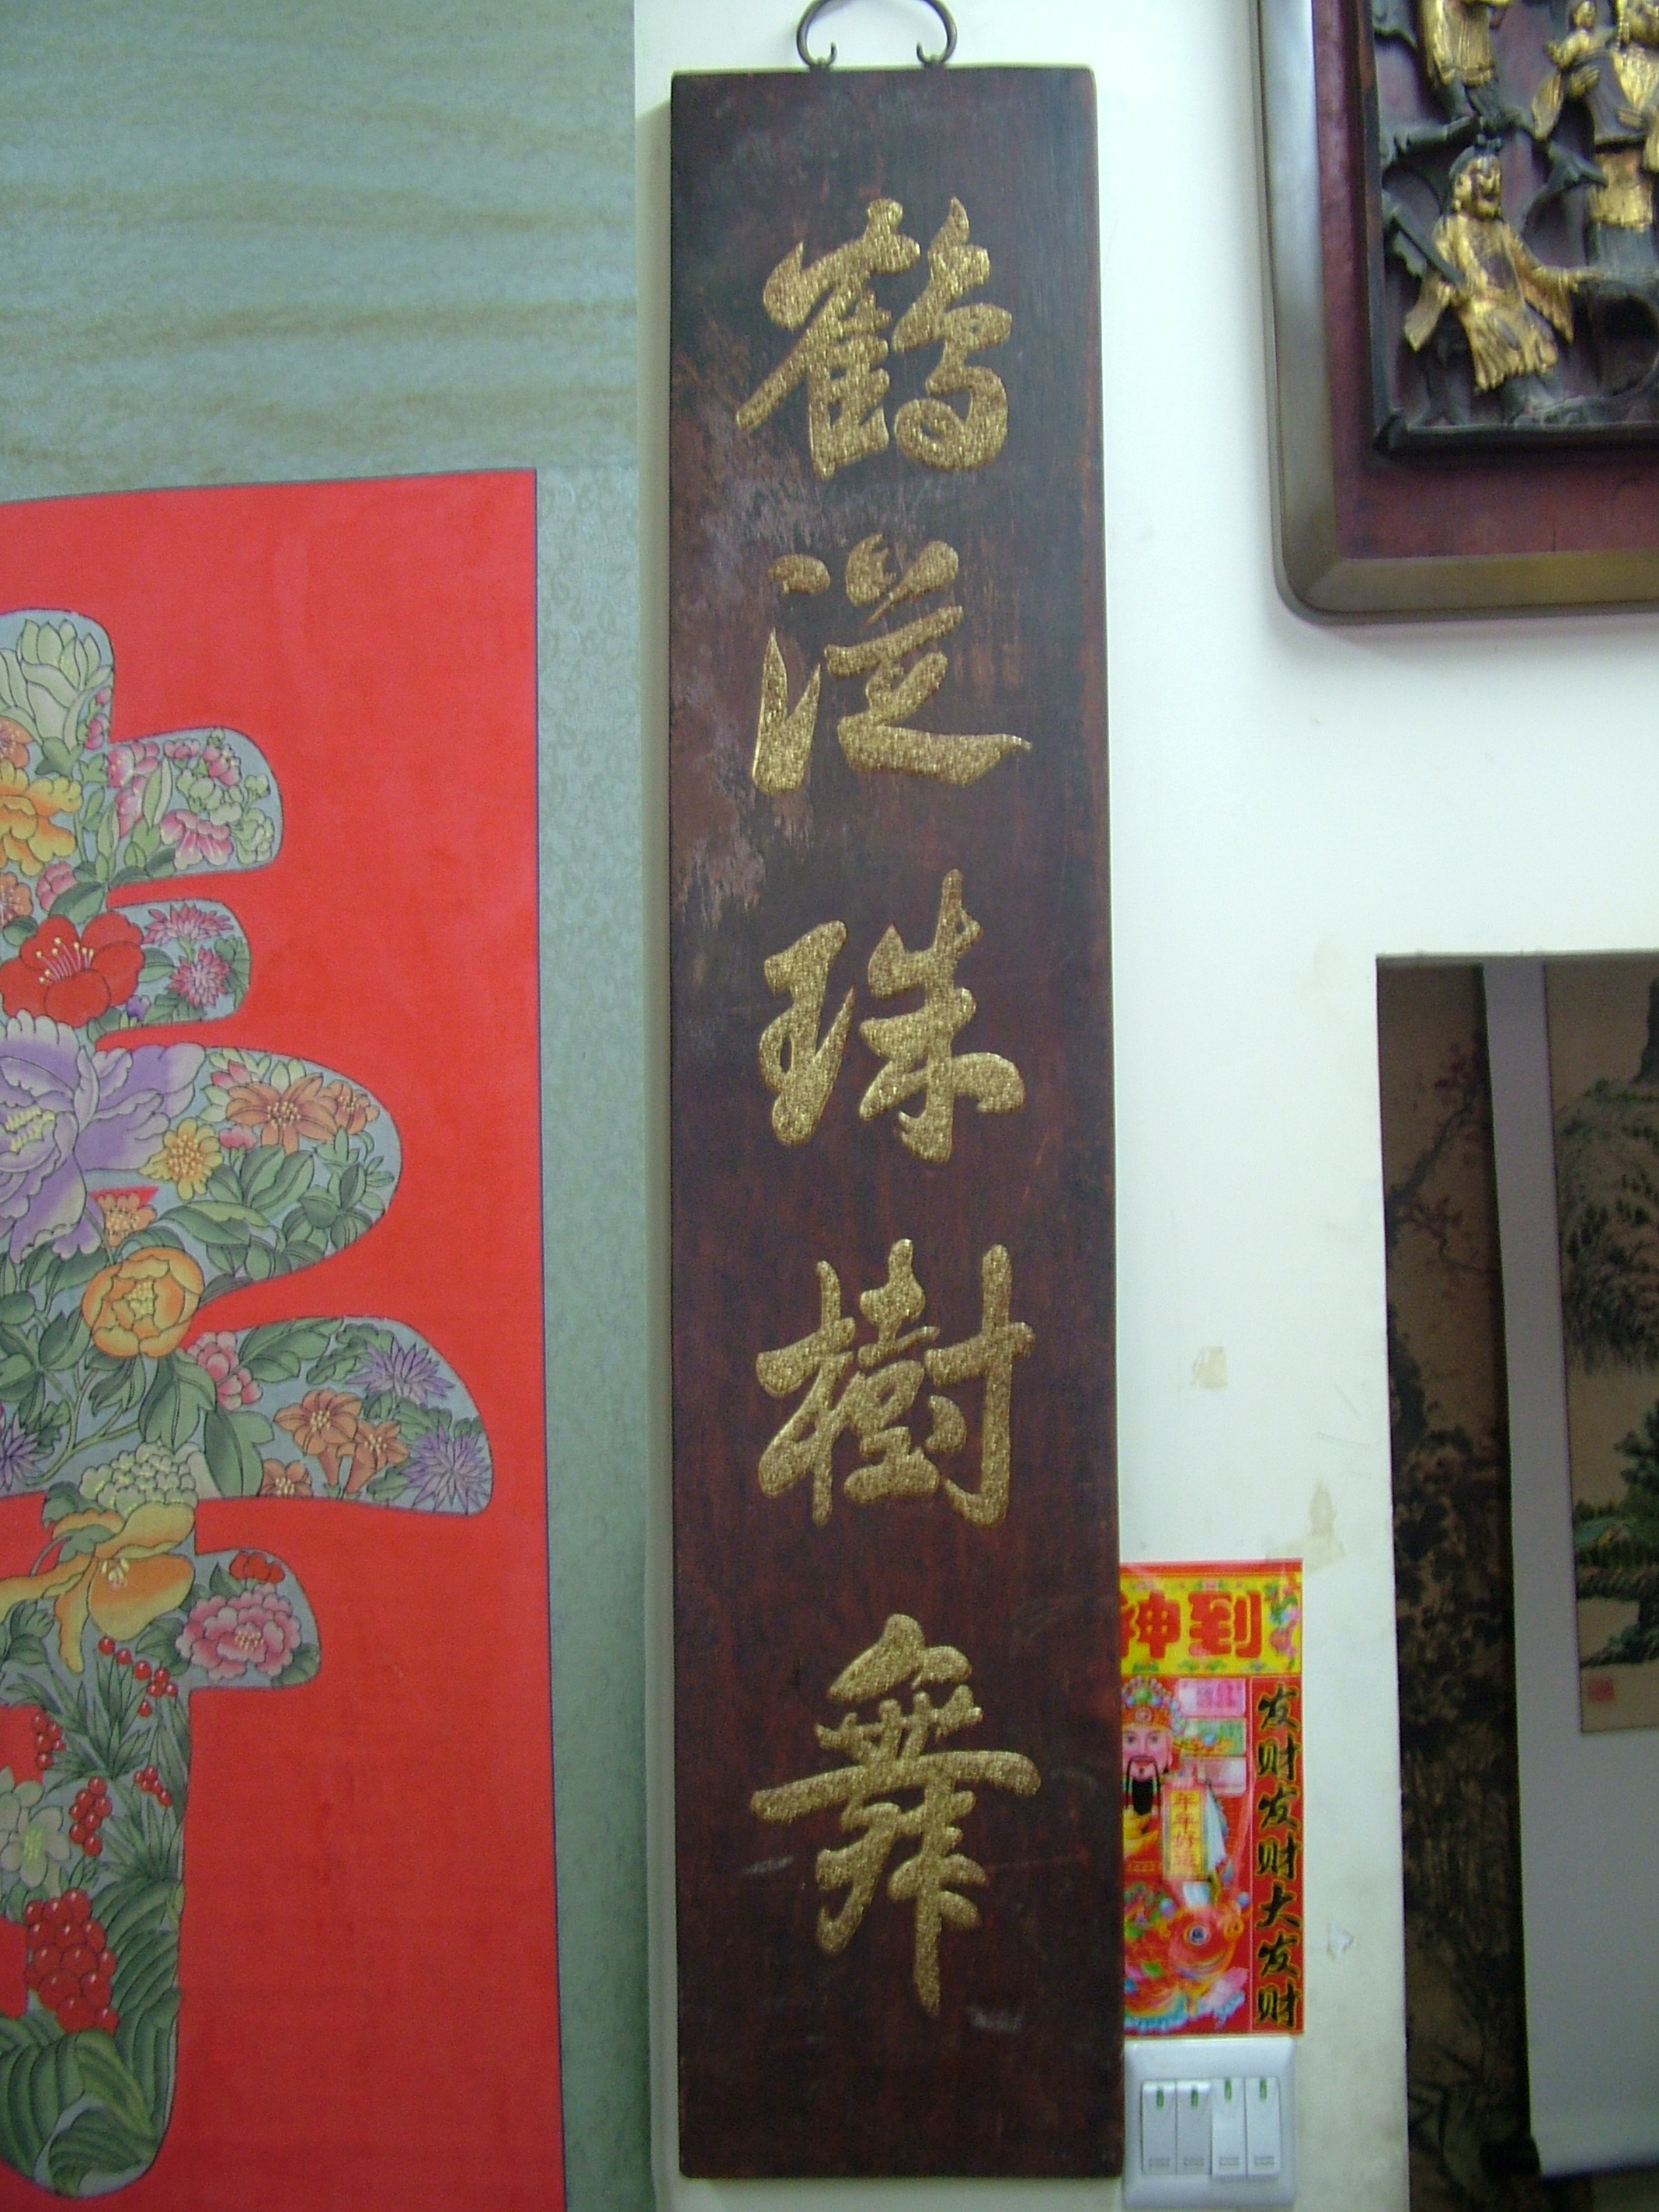 鶴從珠樹舞
神到
发财发财大发财
年年好运